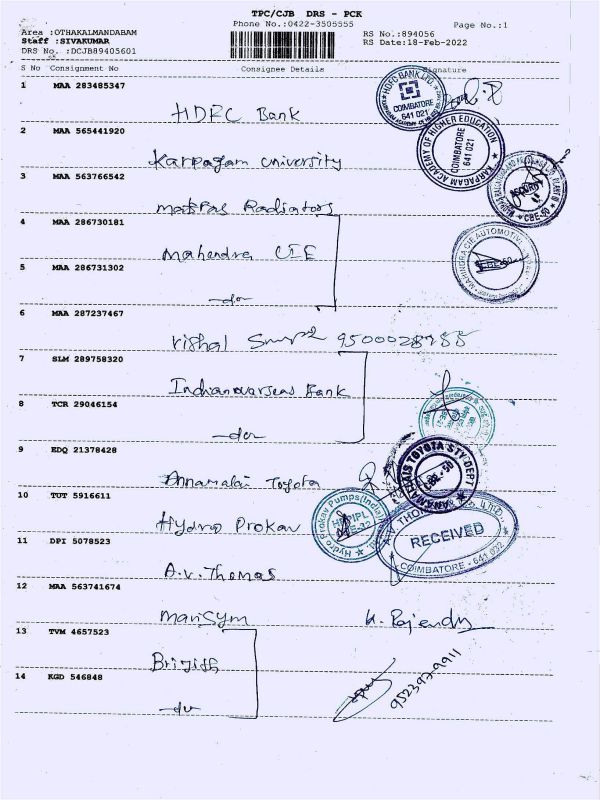 TPC/CJB DRS - PCK
Phone No.:0422-3505555 Page No.:1
Area :OTHAKALMANDABAM RS No.:894056
Staff :SIVAKUMAR RS Date:18-Feb-2022
DRS No. :DCJB89405601
S No Consignment No Consignee Details Signature
1 MAA 283485347
HDFC Bank
HDFC BANK LTD.
COIMBATORE
641 021
2 MAA 565441920
Karpagam University
KARPAGAM ACADEMY OF HIGHER EDUCATION
COIMBATORE
641 021
3 MAA 563766542
Madras Radiators
CBE-50
4 MAA 286730181
Mahendra CIE
MAHINDRA CIE AUTOMOTIVE
5 MAA 286731302
-do-
6 MAA 287237467
Vishal
7 SLM 289758320
Indian overseas Bank
8 TCR 29046154
-do-
9 EDQ 21378428
Annamalai Toyota
ANAMALLAIS TOYOTA
10 TUT 5916611
Hydro Prokav
Hydro Prokav Pumps(India)
HPPIPL
CBE-32
11 DPI 5078523
A.V. Thomas
RECEIVED
COIMBATORE - 641 022
12 MAA 563741674
K. Rajendr
13 TVM 4657523
14 KGD 546848
-do-